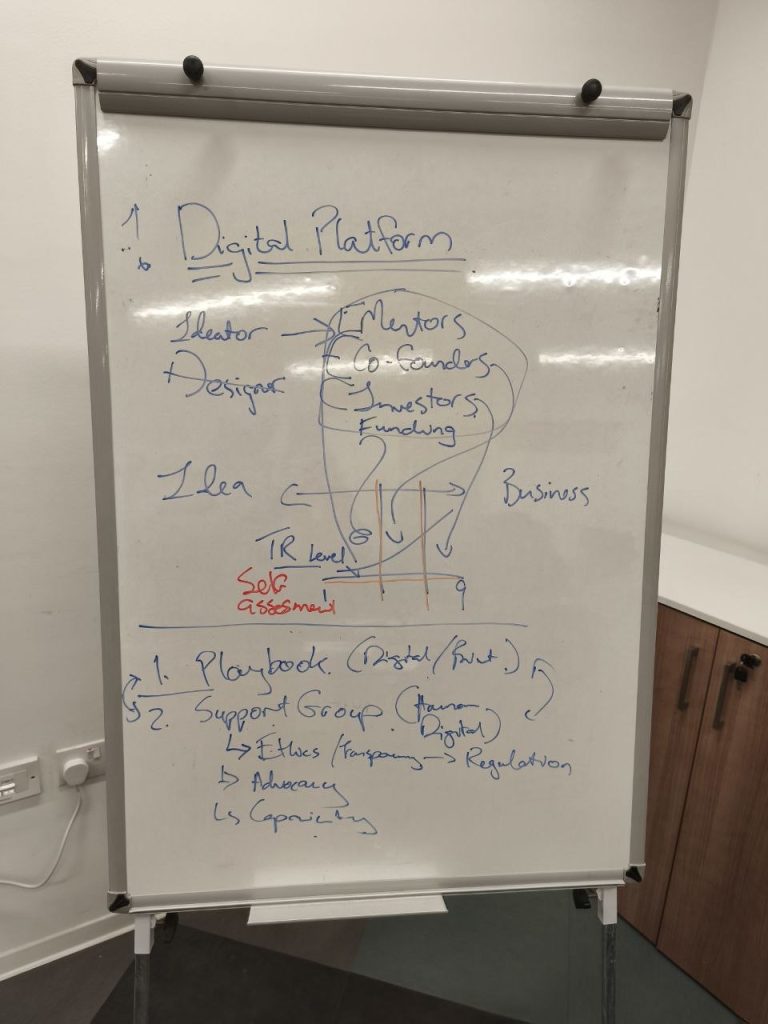 Digital Platform
Ideator → Mentors
Designer Co-founders
Investors
Funding
Idea Business
TR Level
Self
assesment 1 9
1. Playbook (Digital/Print)
2. Support Group (Human
Digital)
↳ Ethics / Transparency → Regulation
↳ Advocacy
↳